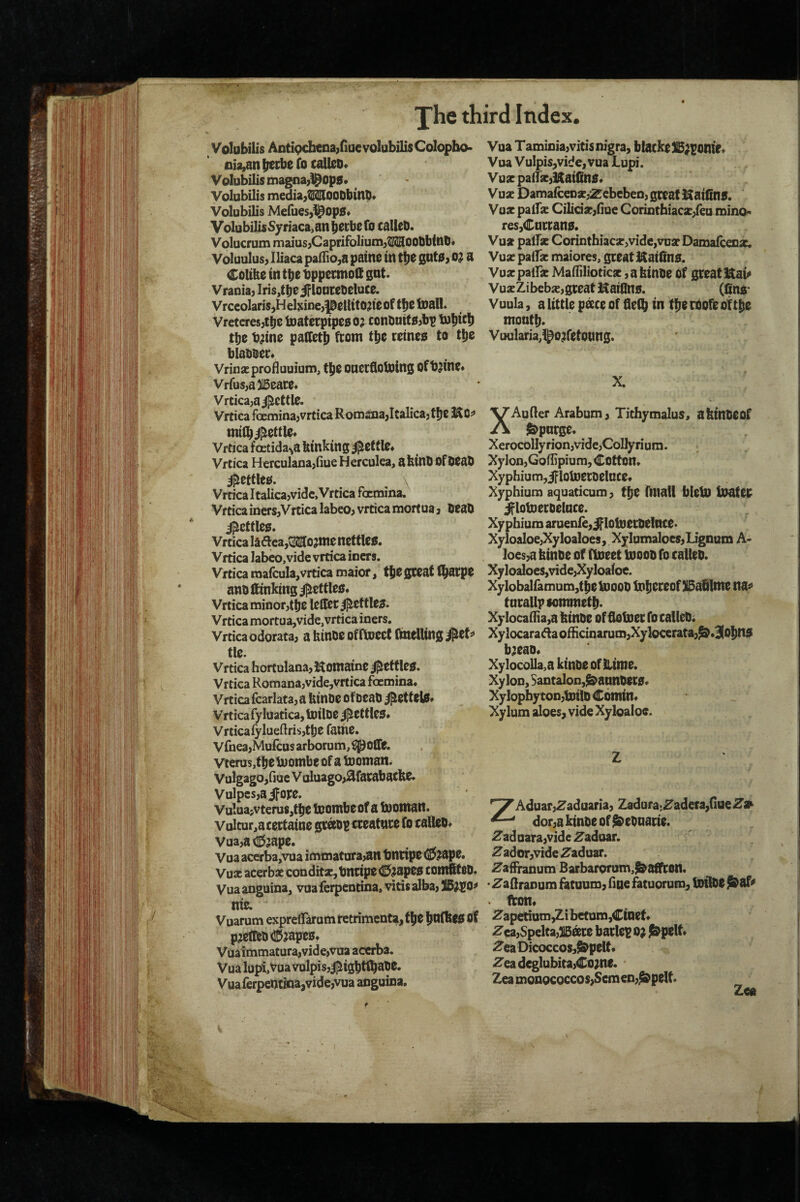 The third Index.
Volubilis Antiochena,siue volubilis Colopho-
nia,an herbe so called.
Volubilis magna,Hops.
Volubilis media,Woodbind.
Volubilis Mesues,Hops.
Volubilis Syriaca,an herbe so called.
Volucrum maius,Caprifolium,Woodbind.
Voluulus, Iliaca passio,a paine in the guts, or a
Colike in the vppermost gut.
Vrania, Iris,the Flouredeluce.
Vrceolaris,Helxine,Pellitorie of the wall.
Vreteres,the waterpipes or conduits,by which
the vrine passeth from the reines to the
bladder.
Vrinæ profluuium, the ouerflowing of vrine.
Vrsus,a Beare.
Vrtica,a Nettle.
Vrtica fœmina,vrtica Romana,Italica,the Ro-
mish Nettle.
Vrtica fœtida,a stinking Nettle.
Vrtica Herculana,siue Herculea, a kind of dead
Nettles.
Vrtica Italica,vide,Vrtica fœmina.
Vrtica iners,Vrtica labeo, vrtica mortua, dead
Nettles.
Vrtica lactea,Worme nettles.
Vrtica labeo,vide vrtica iners.
Vrtica mascula,vrtica maior, the great sharpe
and stinking Nettles.
Vrtica minor,the lesser Nettles.
Vrtica mortua,vide,vrtica iners.
Vrtica odorata, a kinde of sweet smelling Net-
tle.
Vrtica hortulana,Romaine Nettles.
Vrtica Romana,vide,vrtica fœmina.
Vrtica scarlata,a kinde of dead Nettels.
Vrtica syluatica,wilde Nettles.
Vrtica syluestris,the same.
Vsnea,Muscus arborum,Mosse.
Vterus,the wombe of a woman.
Vulgago,siue Vuluago,Asarabacke.
Vulpes,a Foxe.
Vulua,vterus,the wombe of a woman.
Vultur,a certaine greedy creature so called.
Vua,a Grape.
Vua acerba,vua immatura,an vnripe Grape.
Vuæ acerbæ conditæ,vnripe Grapes comfited.
Vua anguina, vua serpentina, vitis alba, Bryo-
nie.
Vuarum expressarum retrimenta, the huskes of
pressed Grapes.
Vua immatura,vide,vua acerba.
Vua lupi,vua vulpis,Nightshade.
Vua serpentina,vide,vua anguina.
Vua Taminia,vitis nigra, blacke Bryonie.
Vua Vulpis,vide,vua Lupi.
Vuæ passæ,Raisins.
Vuæ Damascenæ,Zebeben, great Raisins.
Vuæ passæ Ciliciæ,siue Corinthiacæ,seu mino-
res,Currans.
Vuæ passæ Corinthiacæ,vide,vuæ Damascenæ.
Vuæ passæ maiores, great Raisins.
Vuæ passæ Massilioticæ, a kinde of great Rai-
Vuæ Zibebæ,great Raisins. (sins.
Vuula, a little peece of flesh in the roofe of the
mouth.
Vuularia,Horsetoung.
X.
XAuster Arabum, Tithymalus, a kinde of
Spurge.
Xerocollyrion,vide,Collyrium.
Xylon,Gossipium,Cotton.
Xyphium,Flowerdeluce.
Xyphium aquaticum, the small blew water
Flowerdeluce.
Xyphium aruense,Flowerdeluce.
Xyloaloe,Xyloaloes, Xylumaloes,Lignum A-
loes,a kinde of sweet wood so called.
Xyloaloes,vide,Xyloaloe.
Xylobalsamum,the wood whereof Basilme na-
turally commeth.
Xylocassia,a kinde of flower so called.
Xylocaracta officinarum,Xylocerata,S.Iohns
bread.
Xylocolla,a kinde of Lime.
Xylon, Santalon,Saunders.
Xylophyton,wild Comin.
Xylum aloes, vide Xyloaloe.
Z
ZAduar,Zaduaria, Zadura,Zadera,siue Za-
dor,a kinde of Seduarie.
Zaduara,vide Zaduar.
Zador,vide Zaduar.
Zaffranum Barbarorum,Saffron.
Zastranum fatuum, siue fatuorum, wilde Saf-
fron.
Zapetium,Zibetum,Ciuet.
Zea,Spelta,Beere barley or Spelt.
Zea Dicoccos,Spelt.
Zea deglubita,Corne.
Zea monococcos,Semen,Spelt.
Zea